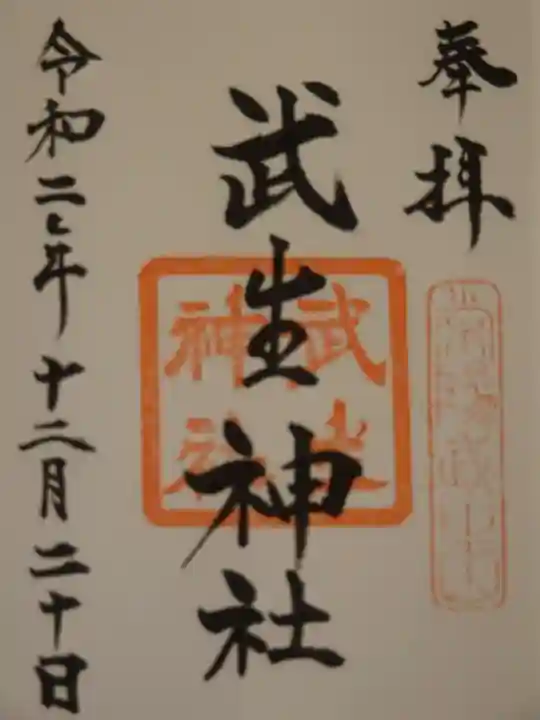 奉拝
武生神社
武生神社
令和二年十二月二十日